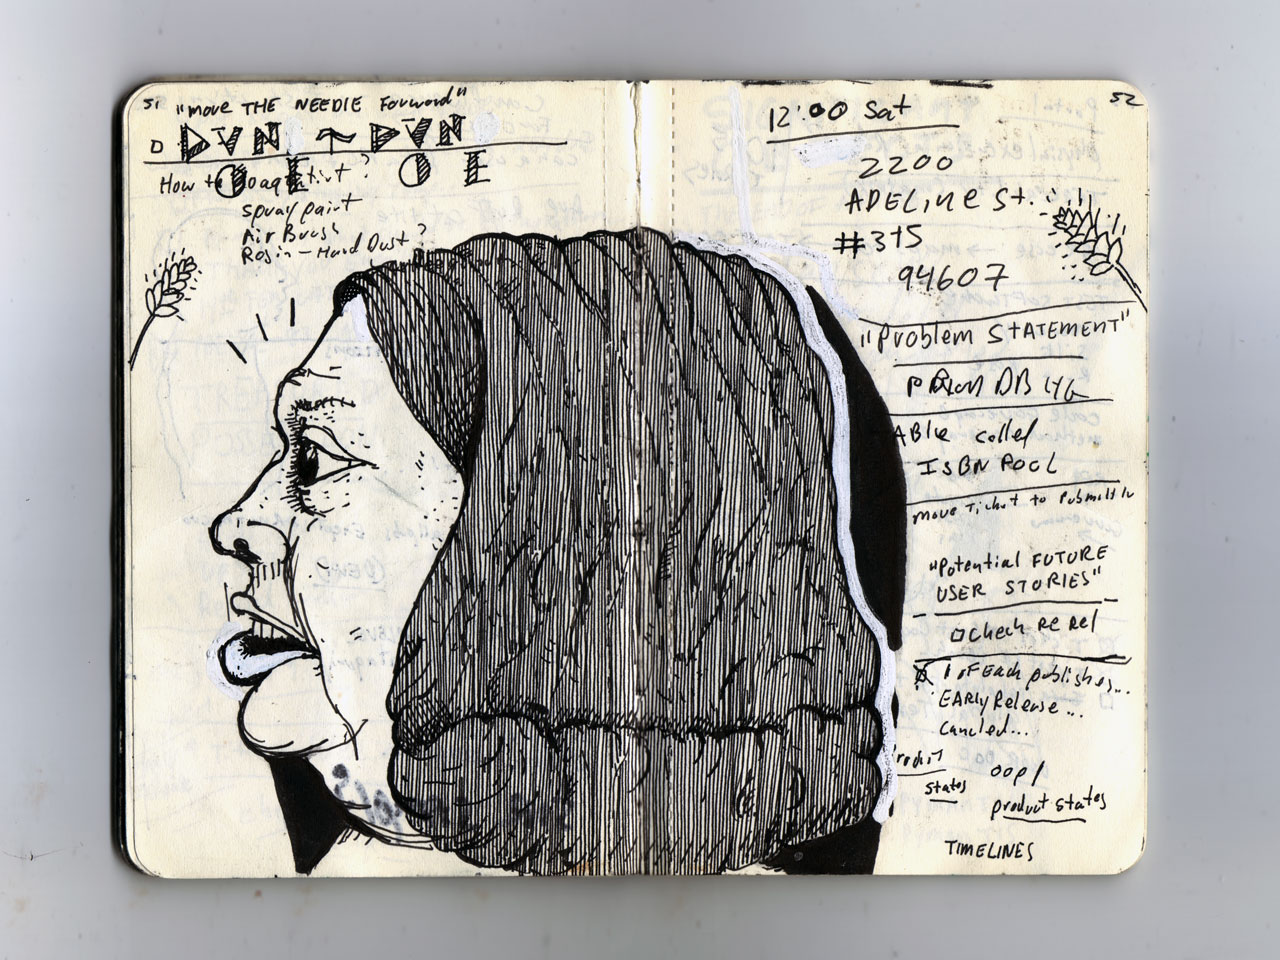 51
"move THE NEEDLE Forward"
DVN
DVN
O E
O E
How to ?
spray paint
Air Brush
Rosin - Hard Dust?
52
12:00 Sat
2200
ADELINE St.
#315
94607
"Problem STATEMENT"
DB
ABLE called
ISBN POOL
move Ticket to
"Potential FUTURE
USER STORIES"
Check
of Each publisher...
EARly Release...
Canceled...
states
oop/
product states
TIMELINES